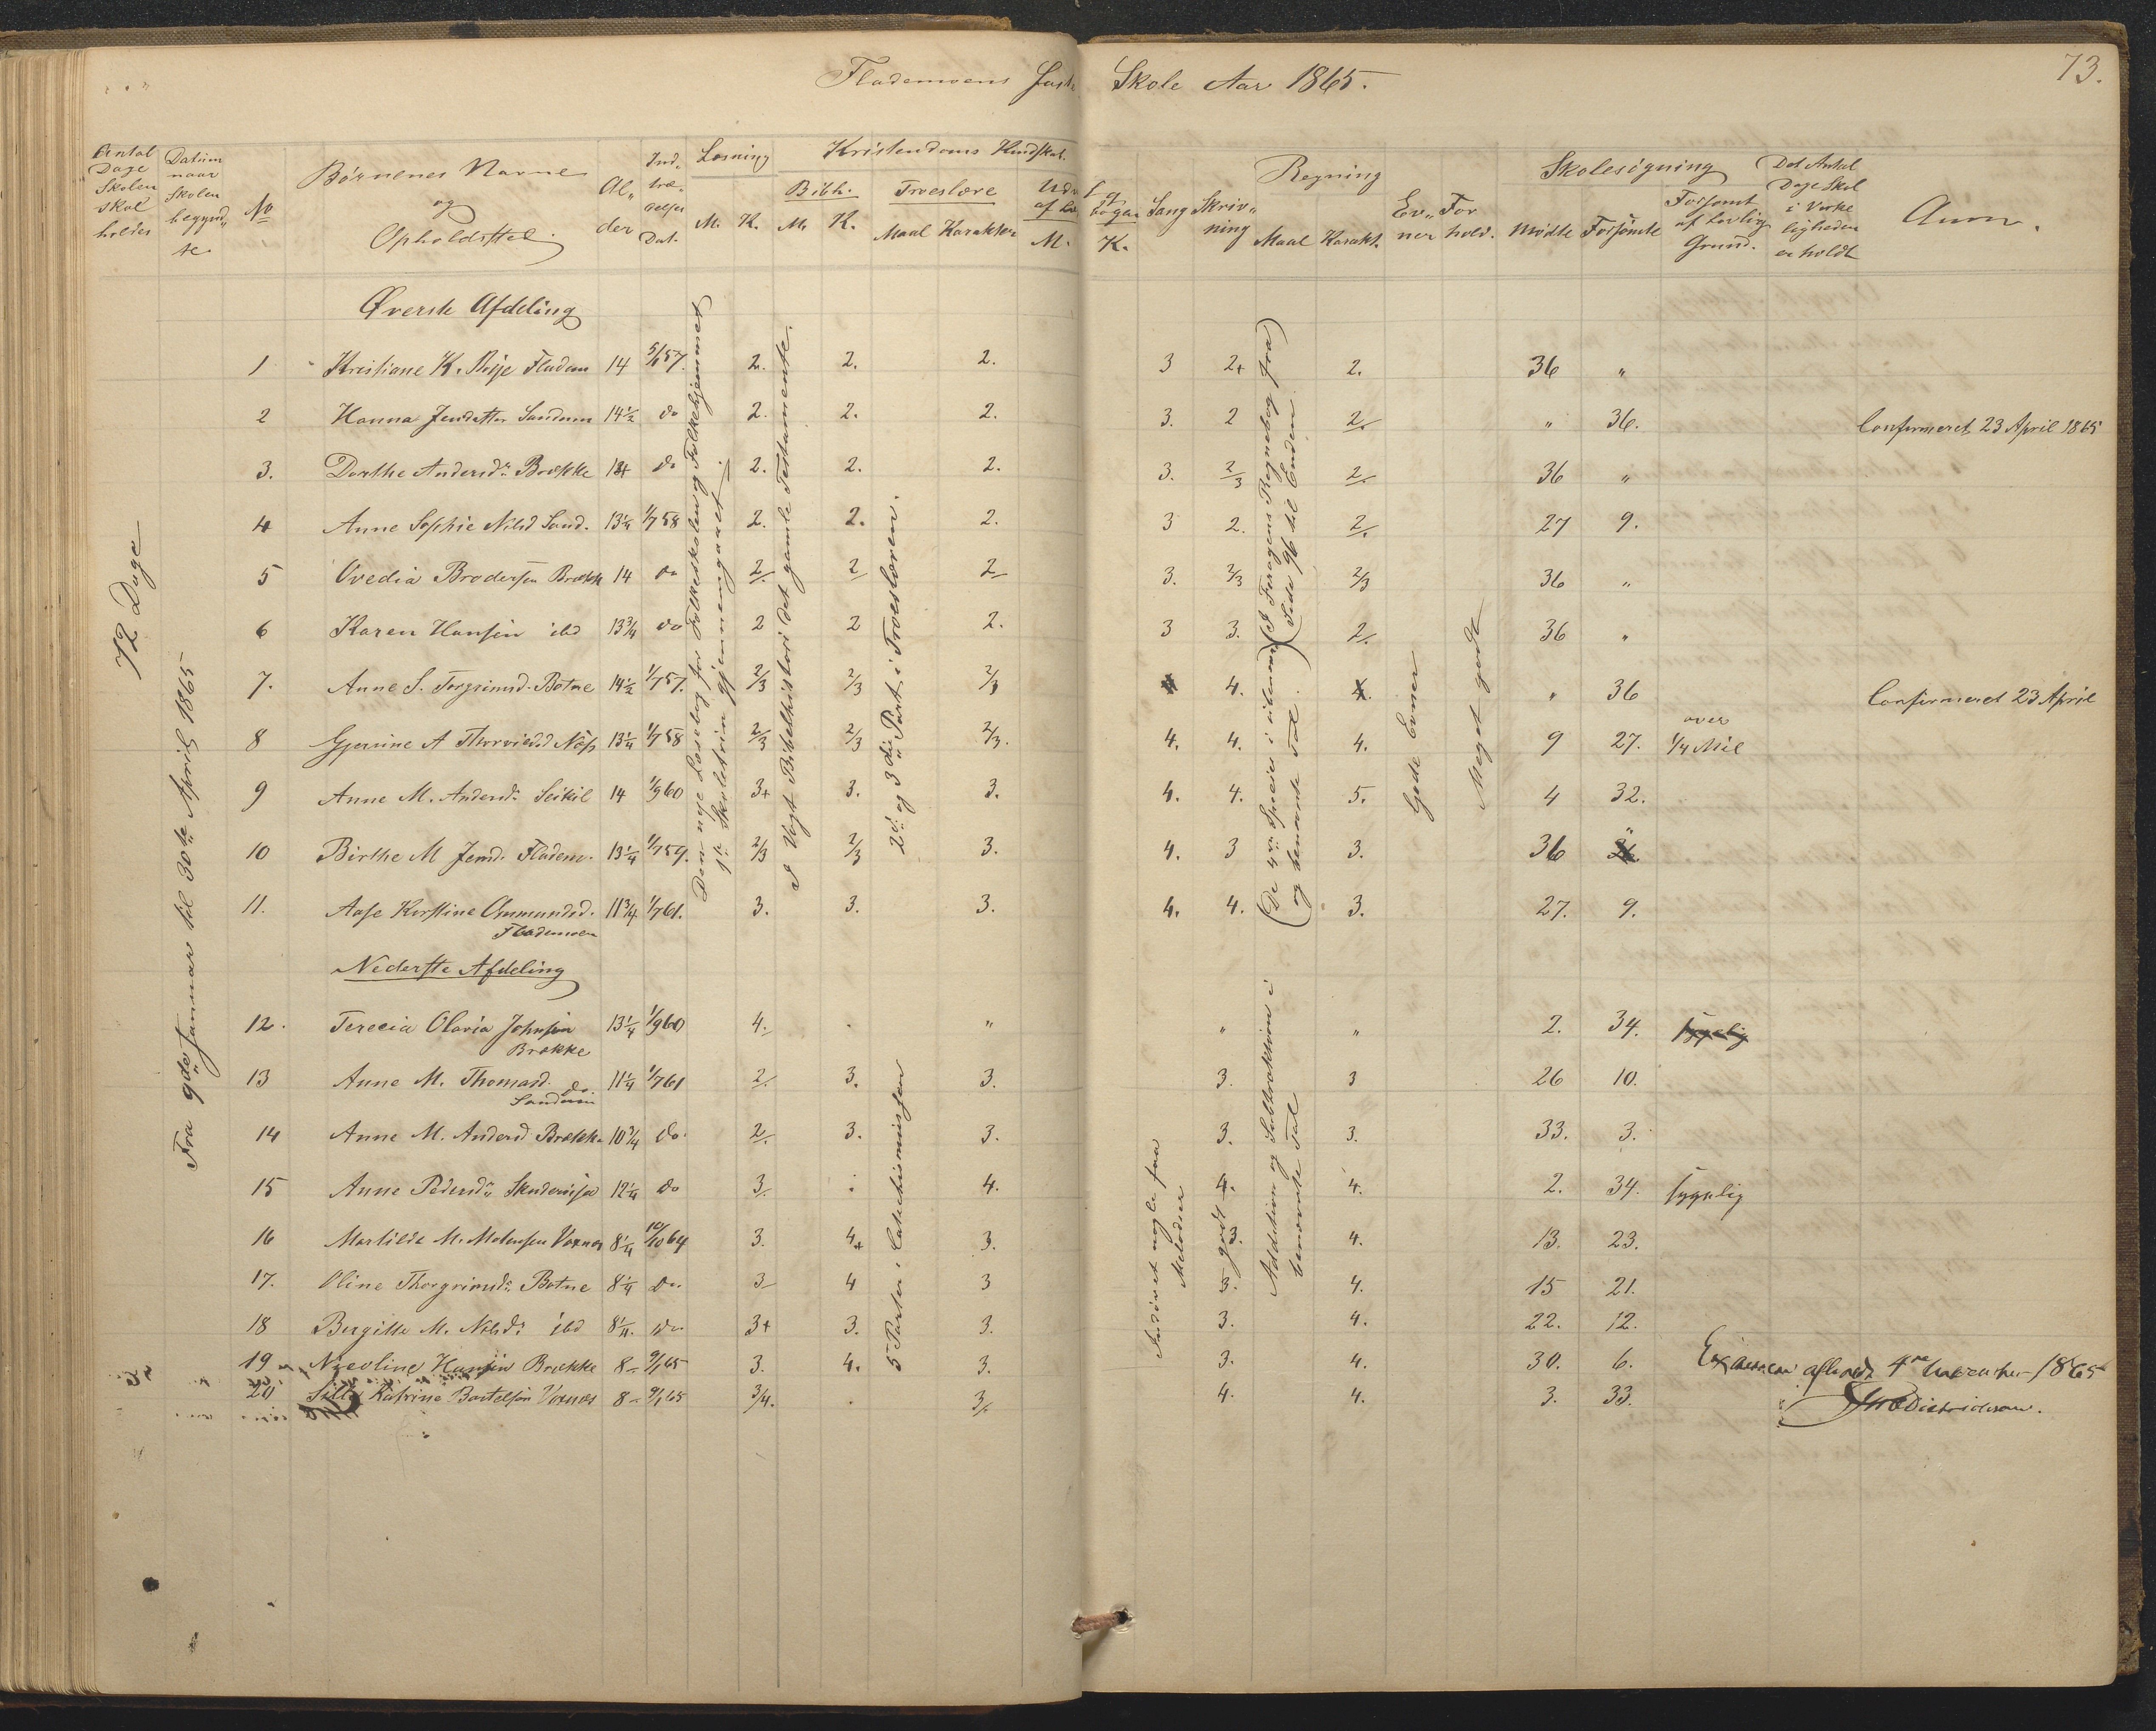 73.
Flademoens faste Skole Aar 1865.
Antal Dage Skolen skal holdes
Datum naar Skolen begyndte
No
Børnenes Navne og Opholdsted.
Alder
Indtrædelses Dat.
Læsning M. K.
Kristendoms Kundskab.
Bibh. M. K.
Troeslære Maal Karakter
M. K.
Sang
Skrivning
Regning Maal Karakt.
Evner
Forhold.
Skolesøgning
Mødte Forsømte
Forsømt af lovlig Grund.
Det Antal Dage Skol i Virkeligheden er holdt
Anm.
72 Dage
Fra 9de Januar til 30te April 1865
Øverste Afdeling
1 Kristiane K. Moje Fladem 14 5/1 57. 2. 2. 2. 3 2+ 2. 36 "
2 Hanna Jensdatter Sandum 14½ do 2. 2. 2. 3. 2 2. " 36. Confirmeret 23 April 1865
3. Dorthe Andersd. Brække 14 do 2. 2. 2. 3. 2/3 2. 36 "
4 Anne Sophie Nilsd Sand. 13¼ 1/7 58 2. 2. 2. 3 2. 2. 27 9.
5 Ovedia Brodersen Brække 14 do 2. 2 2 3. 2/3 2/3 36 "
6 Karen Hansen ibd 13¾ do 2 2 2. 3 3. 2. 36 "
7. Anne S. Torgrimsd. Botne 14½ 1/7 57. 2/3 2/3 2/3 4 4. 4. " 36 Confirmeret 23 April
8 Gjerine A Thorvildsd Næs 13¼ 1/7 58 2/3 2/3 2/3. 4. 4. 4. 9 27. over ¼ Mil
9 Anne M. Andersd. Seikil 14 1/9 60 3+ 3. 3. 4. 4. 5. 4 32.
10 Birthe M Jensd. Fladem. 13¼ 1/7 59. 2/3 2/3 3. 4. 3 3. 36 "
11. Aase Kirstine Ommundsd. Flademoen 11¾ 1/7 61. 3. 3. 3. 4. 4. 3. 27. 9.
Den nye Læsebog for Folkeskolen og Folkehjemmet 1ste Skoletrin gjennemgaaet
I Vogt Bibelhistori det gamle Testamente.
2den og 3die Part i Troeslæren.
(De 4re Species i ubenævnte og benævnte Tal.) (I Føragens Regnebog fra Side 96 til Enden)
Gode Evner
Meget godt
Nederste Afdeling
12. Terecia Olavia Johnsen Brække 13¼ 1/9 60 4. . " " " 2. 34. sygelig
13 Anne M. Thomasd. do Sandum 11¼ 1/7 61 2. 3. 3. 3. 3 26 10.
14 Anne M. Andersd Brække 10¾ do. 2. 3. 3. 3. 3. 33. 3.
15 Anne Pedersd. 12¼ do 3. . 4. 4. 4. 2. 34. sygelig
16 Martilde M. Vaxnes 8¼ 10/10 64 3. 4+ 3. 3. 4. 13. 23.
17. Oline Thorgrimsd. Botne 8¼ do. 3 4 3 3. 4. 15 21.
18 Birgitte M. Nilsd. ibd 8¼. do. 3+ 3. 3. 3. 4. 22. 12.
19 Nicoline Hansen Brække 8 9/1 65 3. 4. 3. 3. 4. 30. 6.
20 Sille Katrine Bartelsen Vaxnes 8 9/1 65 3/4. . 3. 4. 4. 3. 33.
5 Parter i Catechismusen
Indøvet nogle faa Melodier
godt
Addition og Subtraktion i benævnte Tal
Examen afholdt 4de November 1865
Diedrichson.